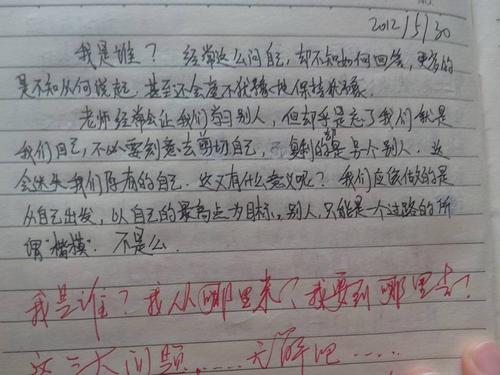 2012/5/30
我是谁？经常这么问自己，却不知如何回答，更多的
是不知从何说起，甚至还会故不犹豫地保持沉默。
老师经常会让我们学习别人，但却乎是忘了我们就是
我们自己，不必要刻意去剪切自己，复制的是另个别人。这
会迷失我们原有的自己，这又有什么意义呢？我们应该做的是
从自己出发，以自己的最高点为目标。别人，只能是一个过路的所
谓"楷模"。不是么
我是谁？我从哪里来？我要到哪里去？
这三大问题……无解吧……